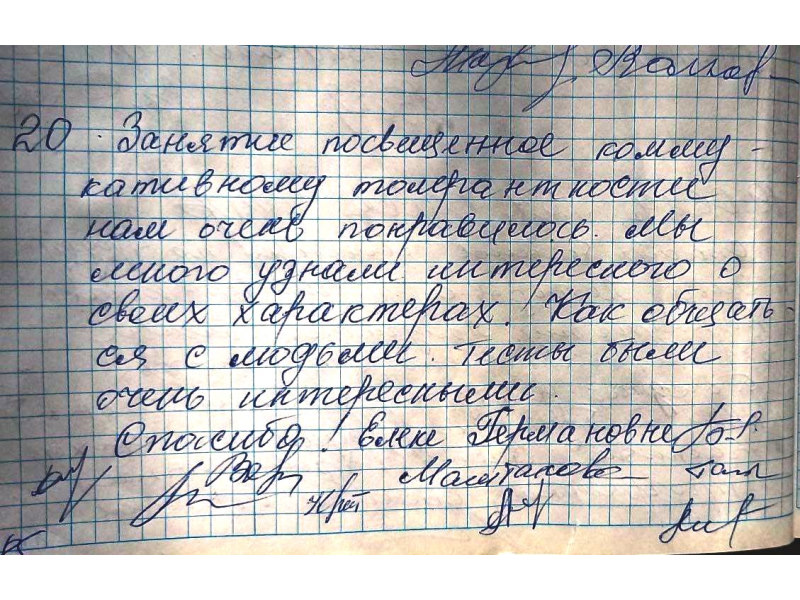 20. Занятие посвещенное комму-
кативному толерантности
нам очень понравилось. Мы
много узнали интересного о
своих характерах. Как общать-
ся с людьми. Тесты были
очень интересными.
Спасибо! Елене Германовне